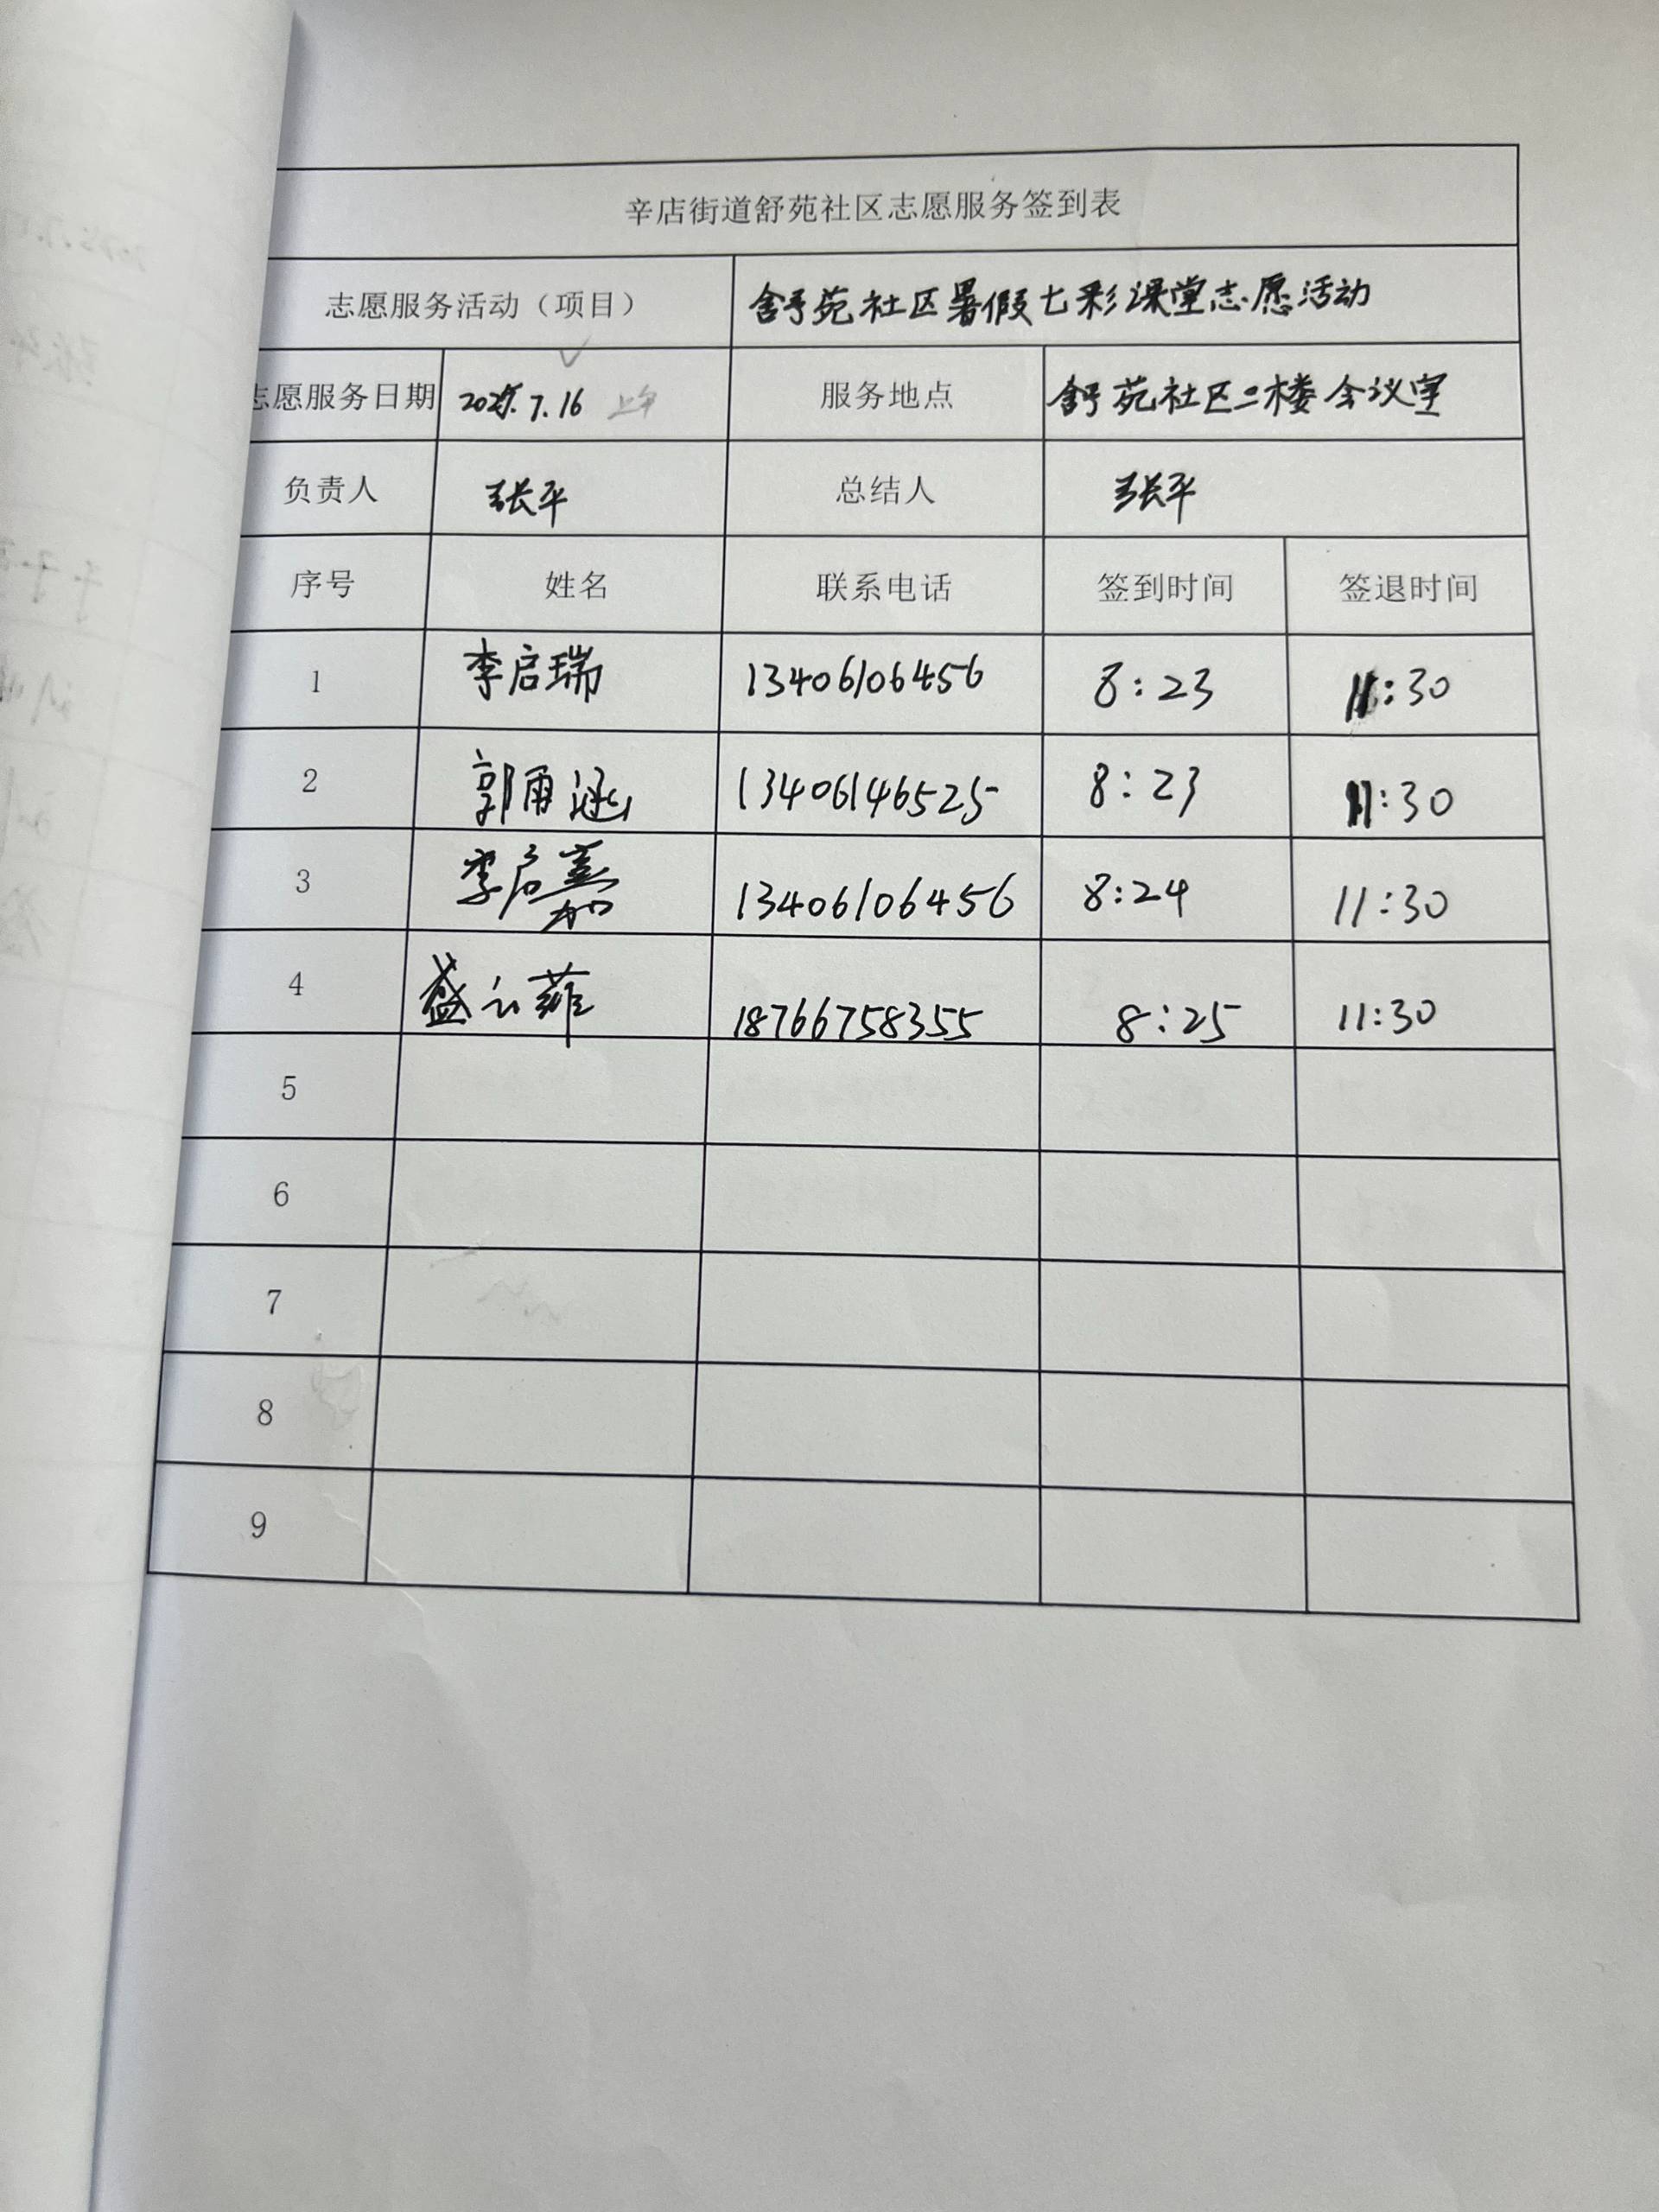 辛店街道舒苑社区志愿服务签到表
志愿服务活动（项目） 舒苑社区暑假七彩课堂志愿活动
志愿服务日期 2025.7.16 上午 服务地点 舒苑社区二楼会议室
负责人 张平 总结人 张平
序号 姓名 联系电话 签到时间 签退时间
1 李启瑞 13406106456 8:23 11:30
2 郭雨涵 13406146525 8:23 11:30
3 李启嘉 13406106456 8:24 11:30
4 盛云菲 18766758355 8:25 11:30
5
6
7
8
9